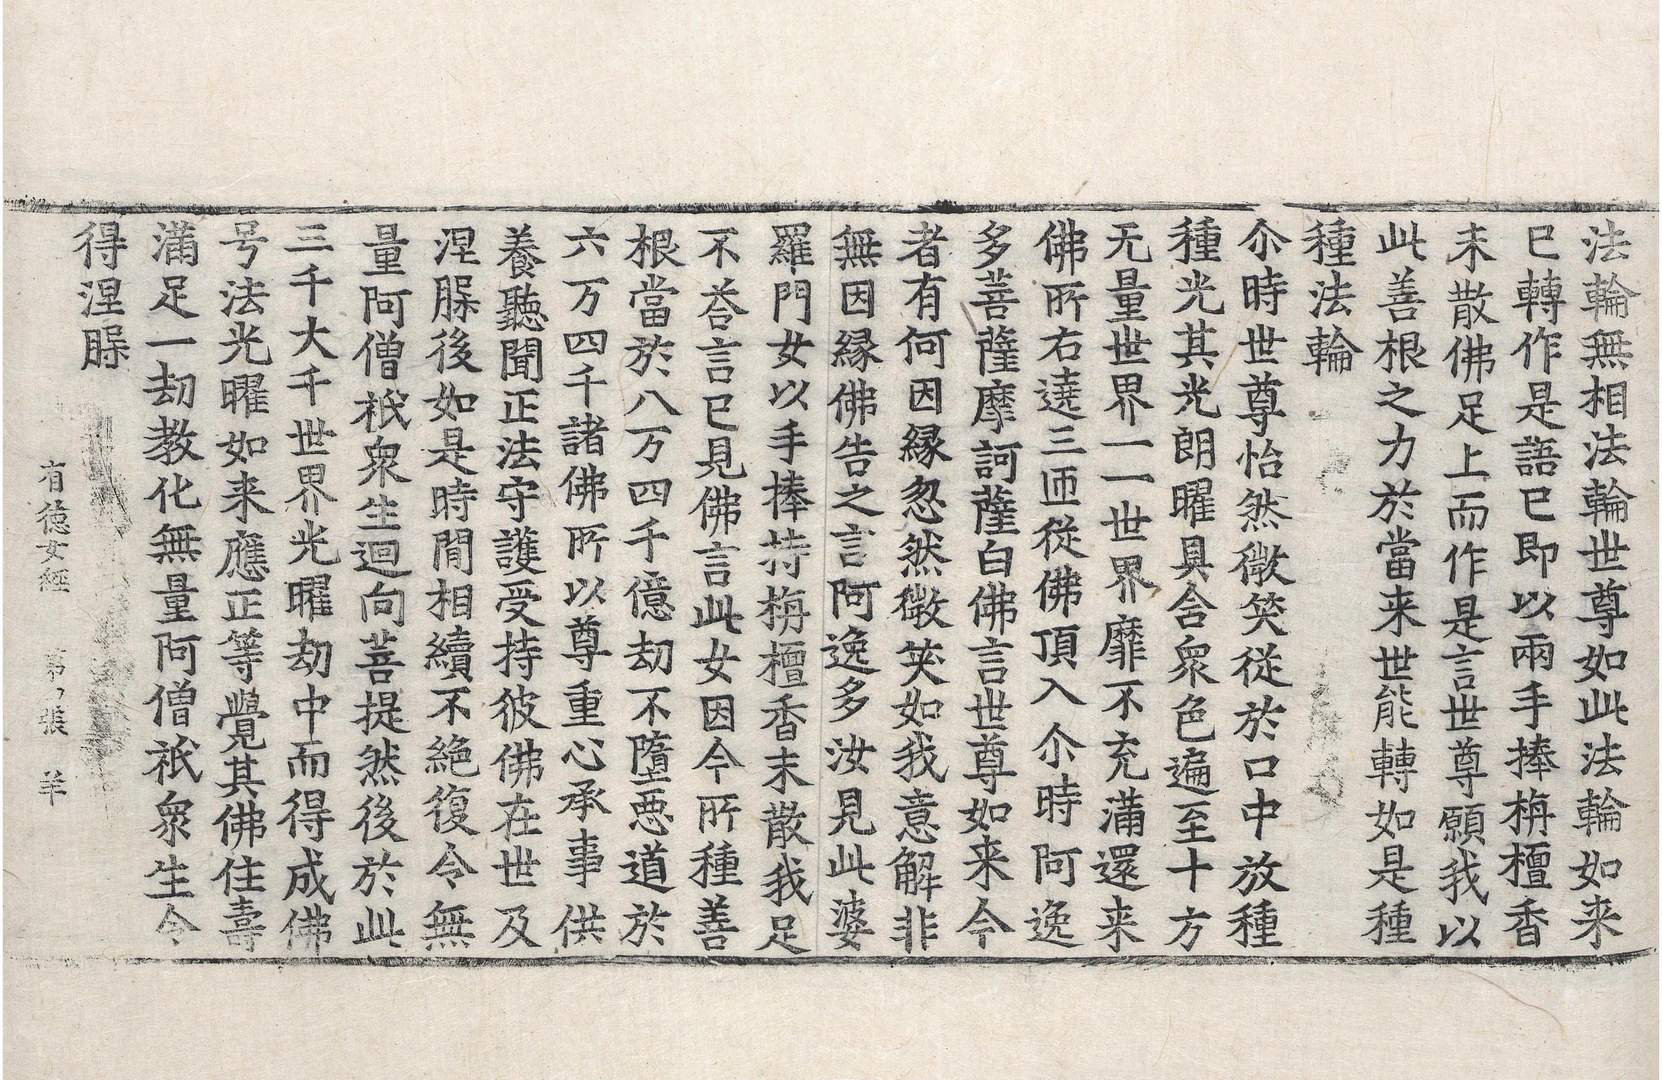 法輪無相法輪世尊如此法輪如来
已轉作是語已即以兩手捧栴檀香
末散佛足上而作是言世尊願我以
此善根之力於當来世能轉如是種
種法輪
尒時世尊怡然微笑從於口中放種
種光其光朗曜具含衆色遍至十方
无量世界一一世界靡不充滿還来
佛所右遶三匝從佛頂入尒時阿逸
多菩薩摩訶薩白佛言世尊如来今
者有何因緣忽然微笑如我意解非
無因緣佛告之言阿逸多汝見此婆
羅門女以手捧持栴檀香末散我足
不荅言已見佛言此女因今所種善
根當於八万四千億劫不墮惡道於
六万四千諸佛所以尊重心承事供
養聽聞正法守護受持彼佛在世及
涅槃後如是時間相續不絕復令無
量阿僧祇衆生迴向菩提然後於此
三千大千世界光曜劫中而得成佛
号法光曜如来應正等覺其佛住壽
滿足一劫教化無量阿僧祇衆生令
得涅槃
有德女經 第 張 羊